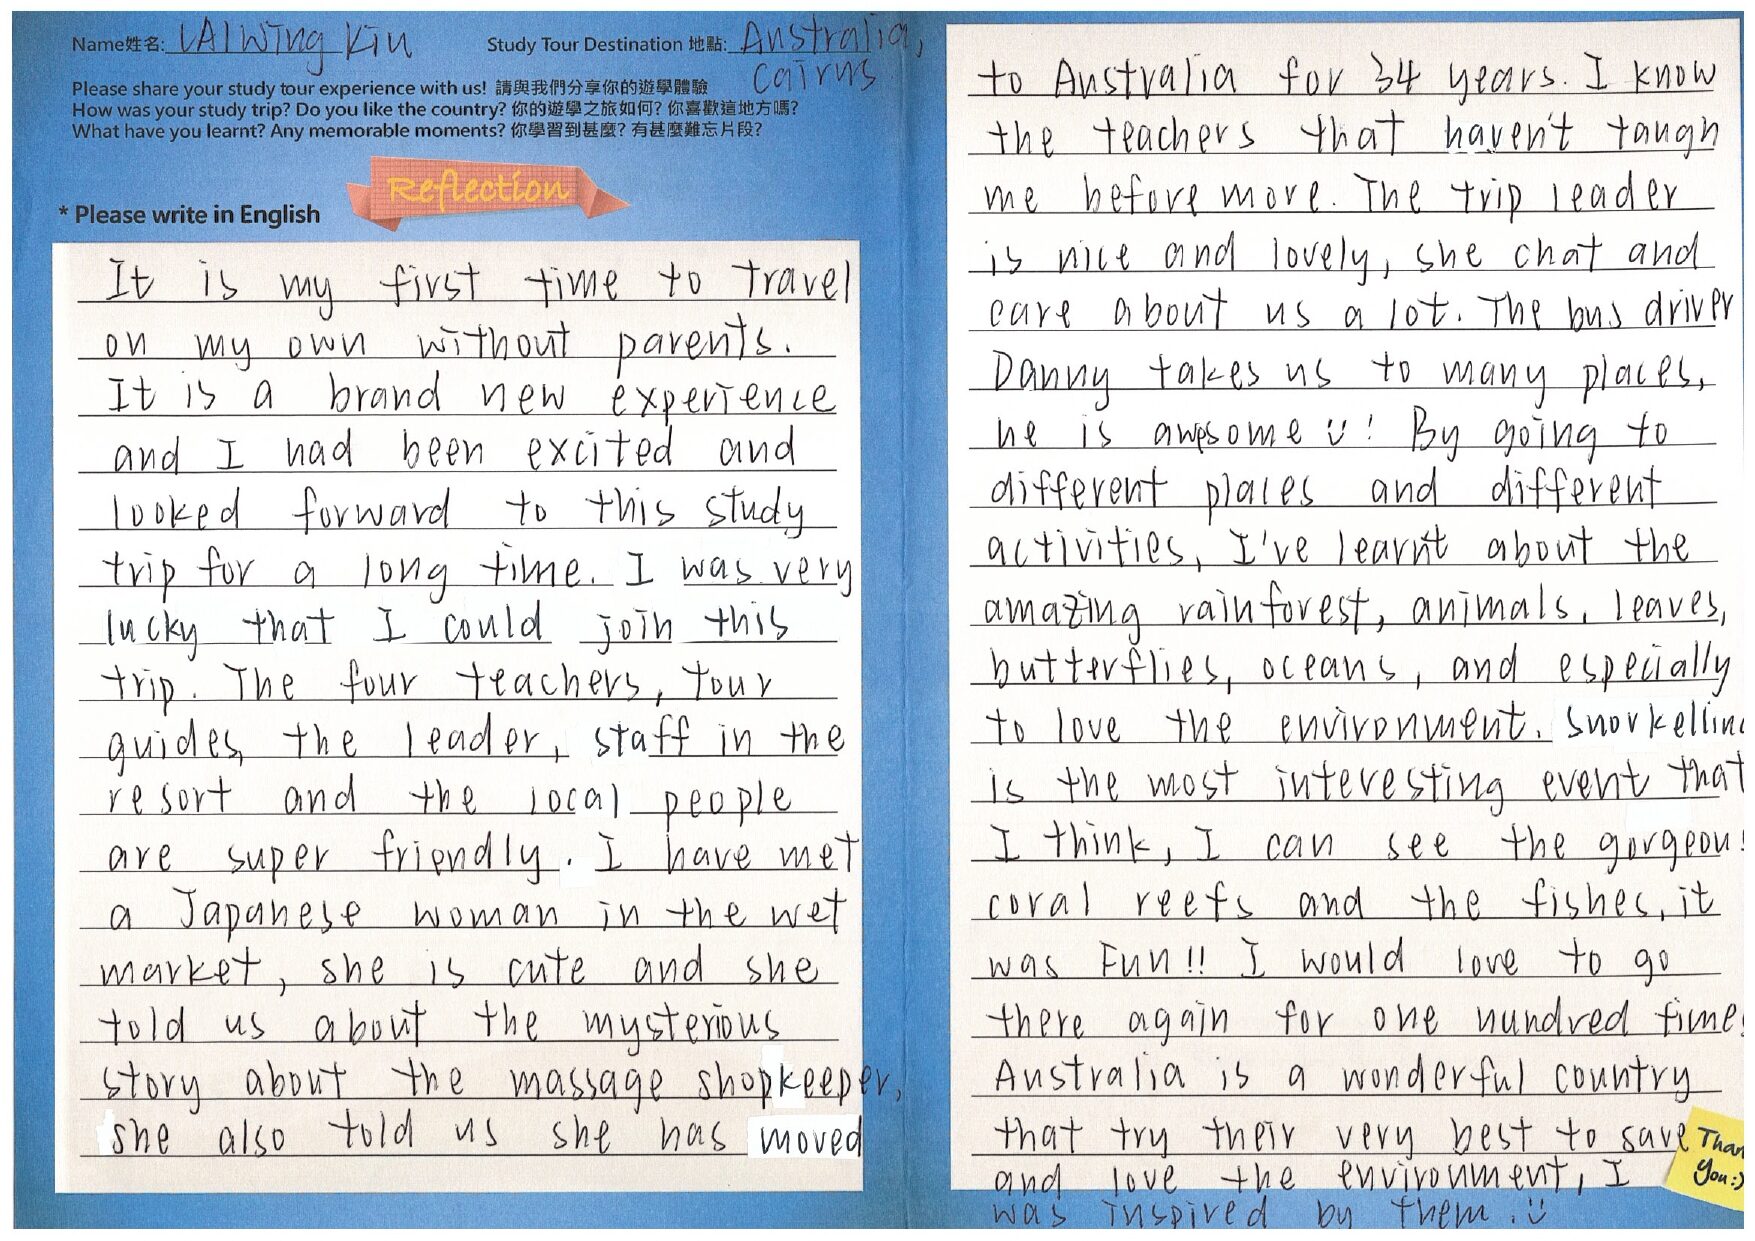 Name姓名: LAI Wing Kiu
Study Tour Destination 地點: Australia,
Cairns
Please share your study tour experience with us! 請與我們分享你的遊學體驗
How was your study trip? Do you like the country? 你的遊學之旅如何? 你喜歡這地方嗎?
What have you learnt? Any memorable moments? 你學習到甚麼? 有甚麼難忘片段?
Reflection
* Please write in English
It is my first time to travel
on my own without parents.
It is a brand new experience
and I had been excited and
looked forward to this study
trip for a long time. I was very
lucky that I could join this
trip. The four teachers, tour
guides, the leader, staff in the
resort and the local people
are super friendly. I have met
a Japanese woman in the wet
market, she is cute and she
told us about the mysterious
story about the massage shopkeeper,
she also told us she has moved
to Australia for 34 years. I know
the teachers that haven't taugh
me before more. The trip leader
is nice and lovely, she chat and
care about us a lot. The bus driver
Danny takes us to many places,
he is awesome :)! By going to
different places and different
activities, I've learnt about the
amazing rainforest, animals, leaves,
butterflies, oceans, and especially
to love the environment. Snorkelling
is the most interesting event that
I think, I can see the gorgeous
coral reefs and the fishes, it
was Fun!! I would love to go
there again for one hundred times
Australia is a wonderful country
that try their very best to save
and love the environment, I
was inspired by them. :)
Than
You:)